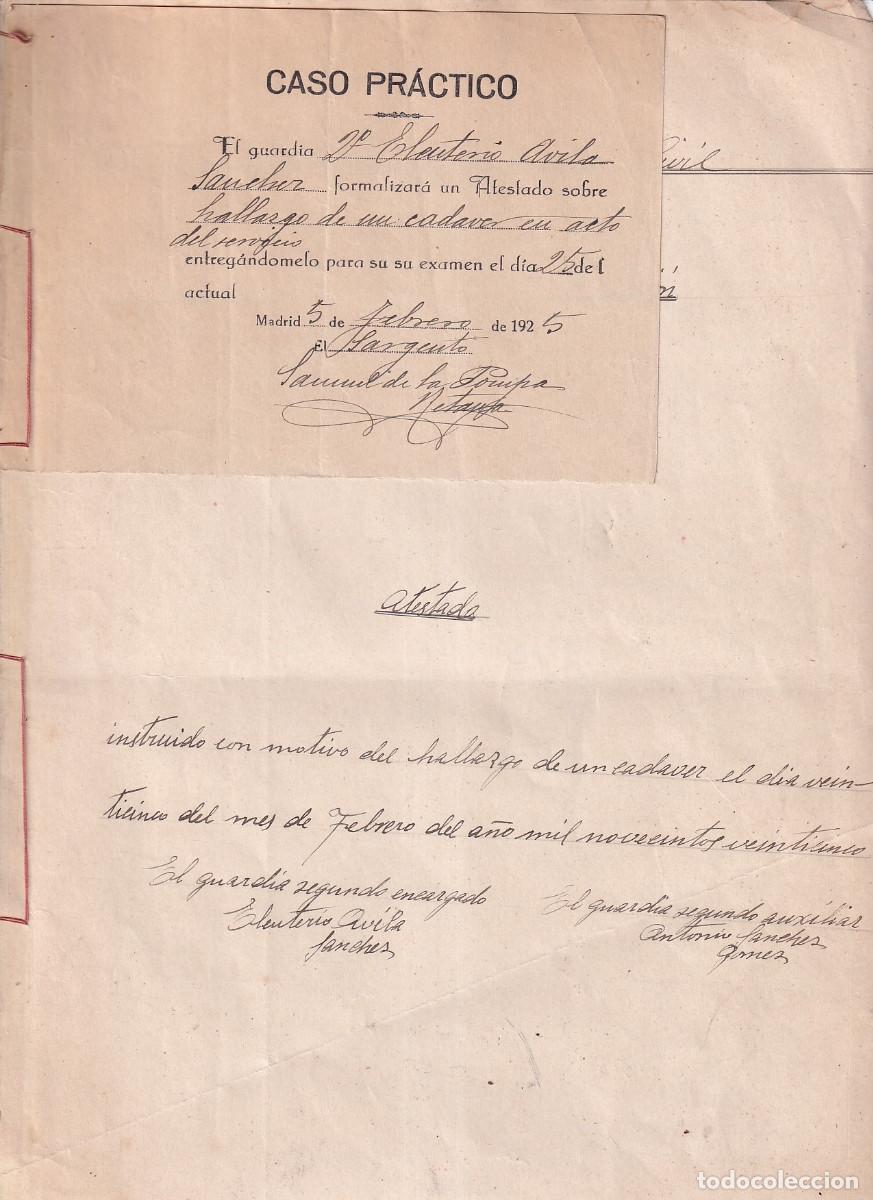 CASO PRÁCTICO
El guardia 2º Eleuterio Avila
Sanchez formalizará un Atestado sobre
hallazgo de un cadaver en acto
del servicio
entregándomelo para su su examen el día 25 del
actual
Madrid 5 de Febrero de 1925
El Sargento
Samuel de la Pompa
Civil
ón
Atestado
instruido con motivo del hallazgo de un cadaver el dia vein-
ticinco del mes de Febrero del año mil novecintos veinticinco
El guardia segundo encargado
Eleuterio Avila
Sanches
El guardia segundo auxiliar
Antonio Sanches
Gomes
todocoleccion